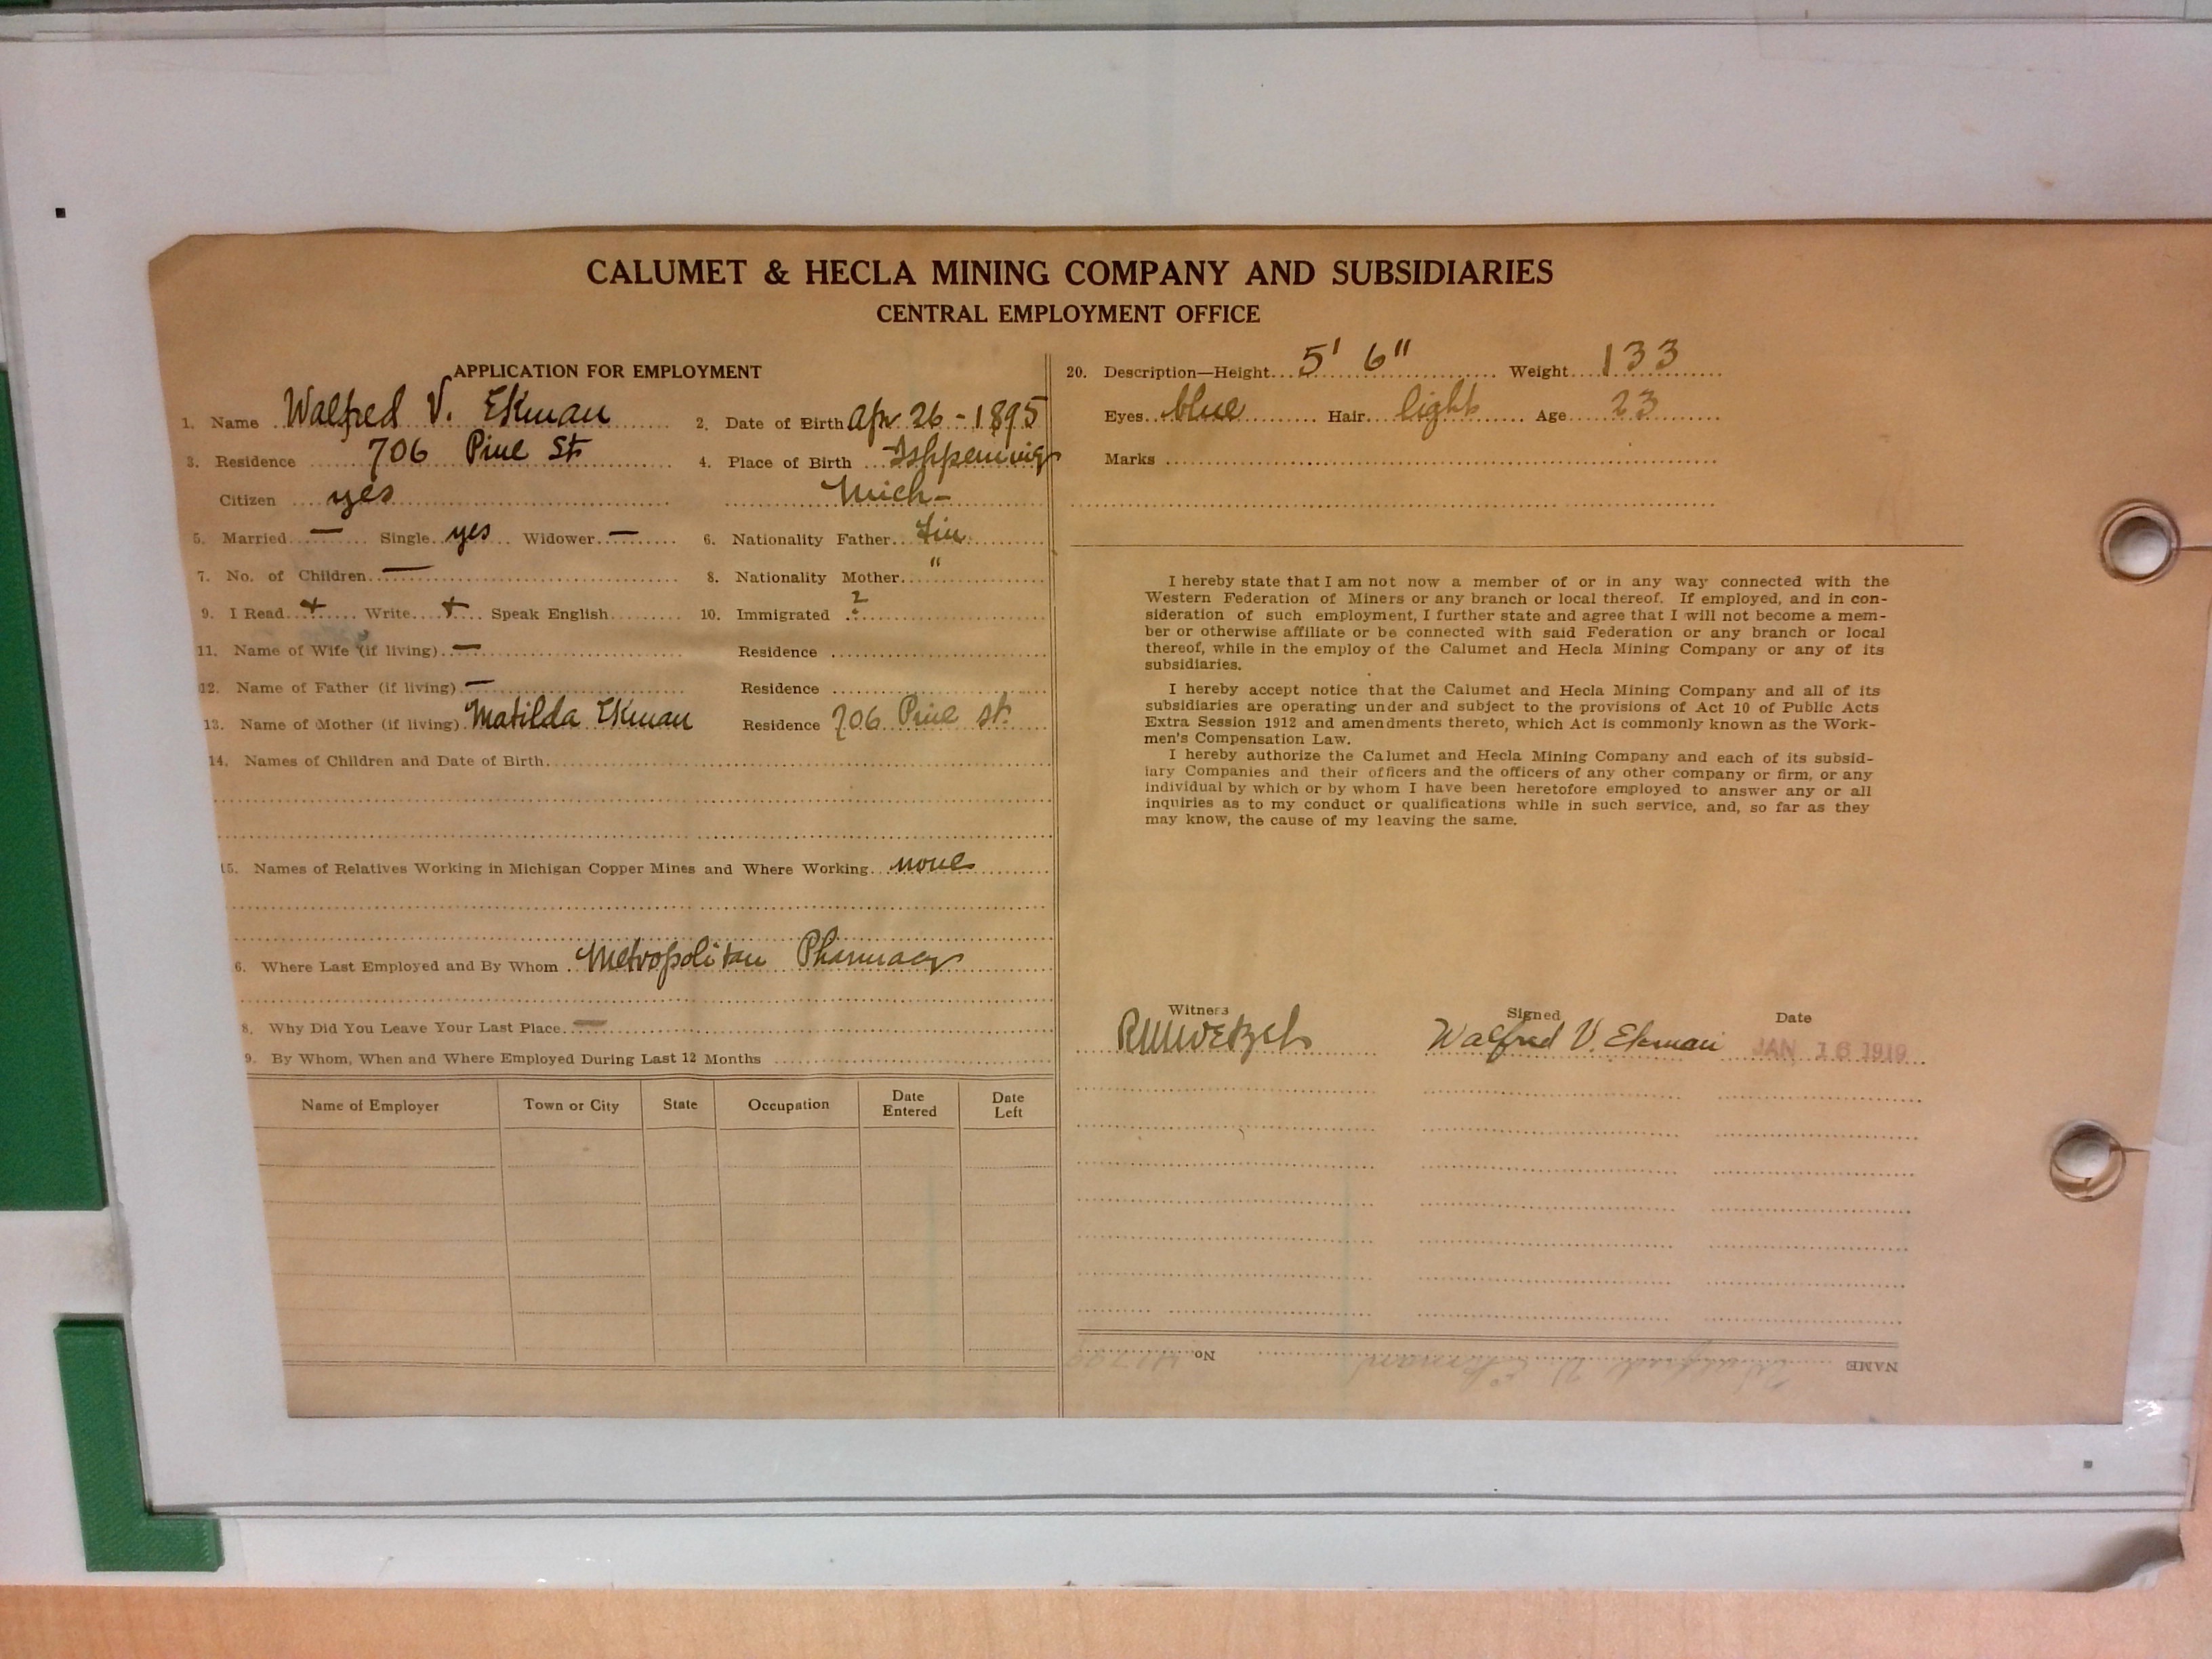 CALUMET & HECLA MINING COMPANY AND SUBSIDIARIES
CENTRAL EMPLOYMENT OFFICE
APPLICATION FOR EMPLOYMENT
1. Name Walfred V. Ekman 2. Date of Birth Apr 26-1895
3. Residence 706 Pine St 4. Place of Birth Ishpeming
Citizen yes Mich-
5. Married — Single yes Widower — 6. Nationality Father Fin
7. No. of Children — 8. Nationality Mother "
9. I Read + Write + Speak English 10. Immigrated ?
11. Name of Wife (if living) — Residence
12. Name of Father (if living) — Residence
13. Name of Mother (if living) Matilda Ekman Residence 706 Pine st.
14. Names of Children and Date of Birth
15. Names of Relatives Working in Michigan Copper Mines and Where Working none
6. Where Last Employed and By Whom Metropolitan Pharmacy
8. Why Did You Leave Your Last Place —
9. By Whom, When and Where Employed During Last 12 Months
Name of Employer Town or City State Occupation Date Entered Date Left
20. Description—Height 5' 6" Weight 133
Eyes blue Hair light Age 23
Marks
I hereby state that I am not now a member of or in any way connected with the
Western Federation of Miners or any branch or local thereof. If employed, and in con-
sideration of such employment, I further state and agree that I will not become a mem-
ber or otherwise affiliate or be connected with said Federation or any branch or local
thereof, while in the employ of the Calumet and Hecla Mining Company or any of its
subsidiaries.
I hereby accept notice that the Calumet and Hecla Mining Company and all of its
subsidiaries are operating under and subject to the provisions of Act 10 of Public Acts
Extra Session 1912 and amendments thereto, which Act is commonly known as the Work-
men's Compensation Law.
I hereby authorize the Calumet and Hecla Mining Company and each of its subsid-
iary Companies and their officers and the officers of any other company or firm, or any
individual by which or by whom I have been heretofore employed to answer any or all
inquiries as to my conduct or qualifications while in such service, and, so far as they
may know, the cause of my leaving the same.
Witness Signed Date
Walfred V. Ekman JAN 16 1919
NAME Walfred V. Ekman No.